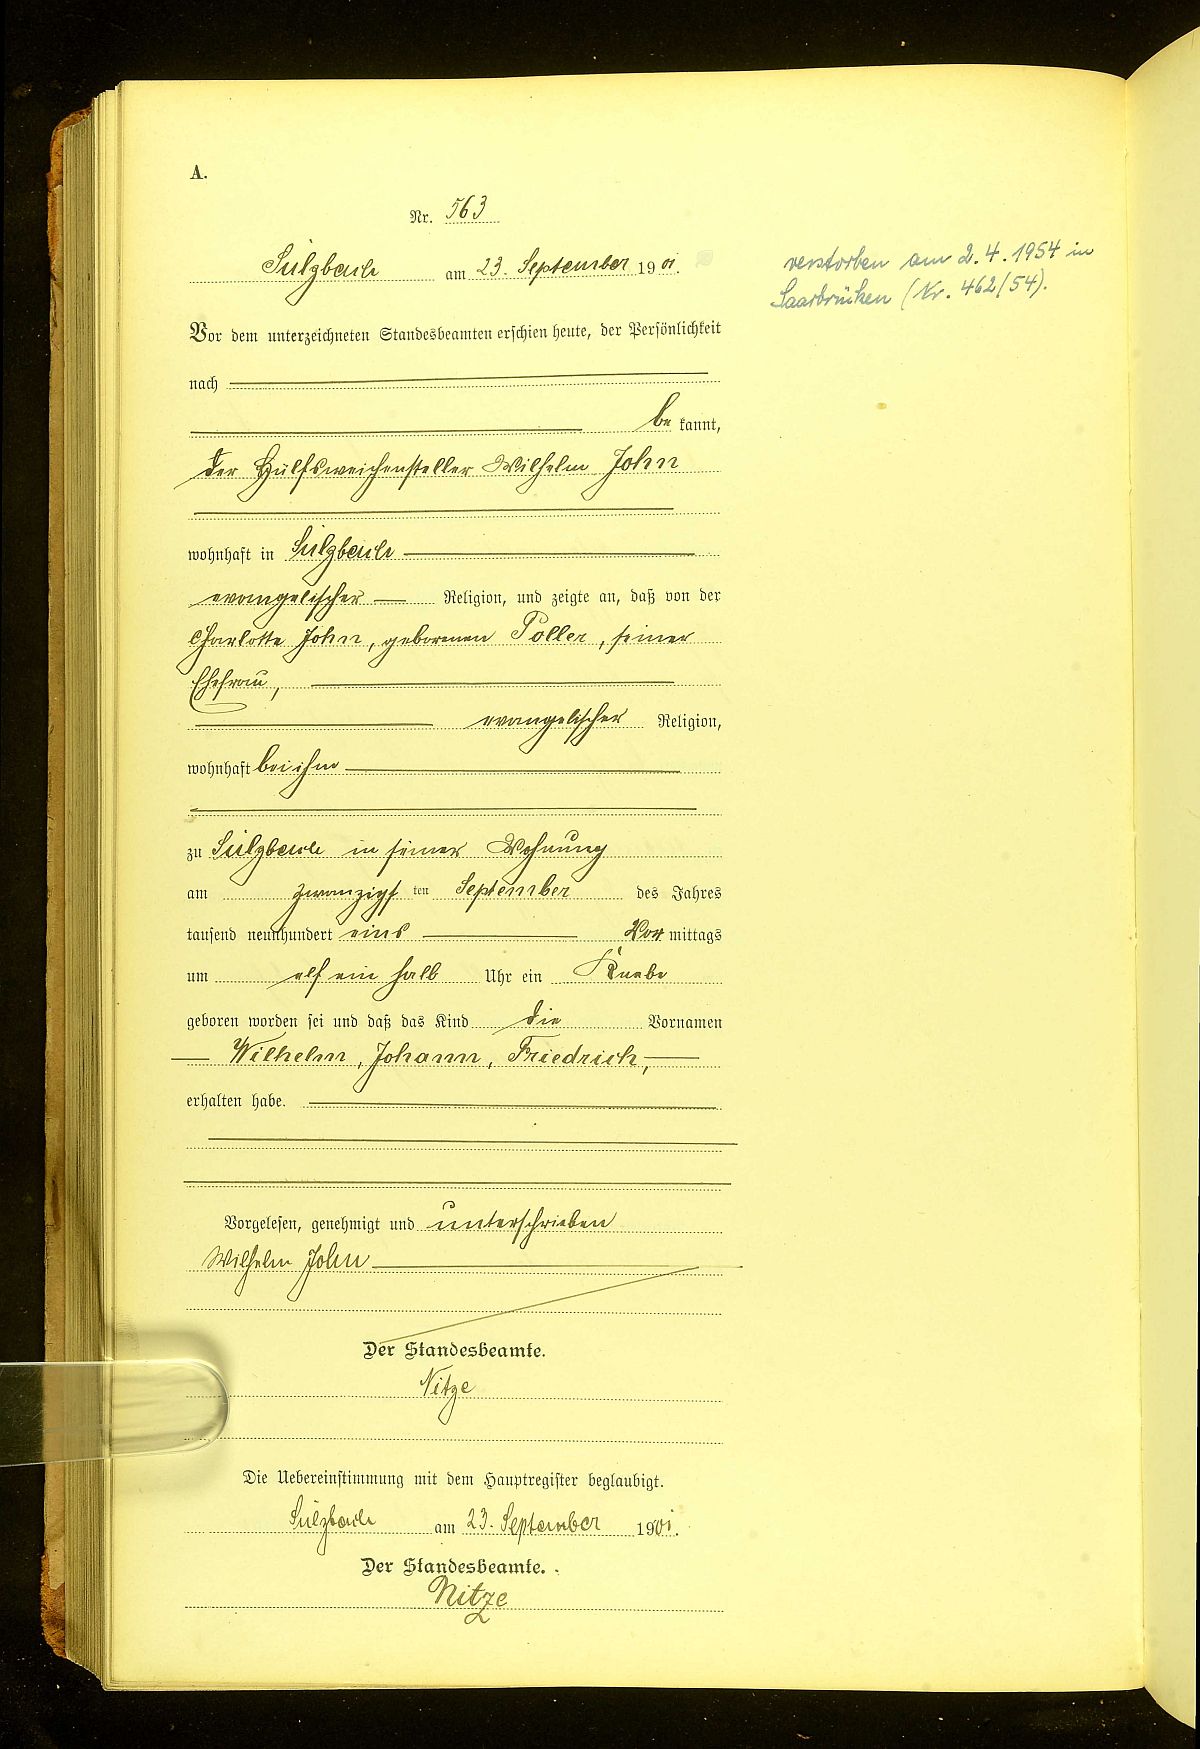 A.
Nr. 563
Sulzbach am 23. September 1901.
verstorben am 2.4.1954 in
Saarbrücken (Nr. 462/54).
Vor dem unterzeichneten Standesbeamten erschien heute, der Persönlichkeit
nach
be kannt,
der Hülfsweichensteller Wilhelm John
wohnhaft in Sulzbach
evangelischer Religion, und zeigte an, daß von der
Charlotte John, geborenen Poller, seiner
Ehefrau,
evangelischer Religion,
wohnhaft bei ihm
zu Sulzbach in seiner Wohnung
am zwanzigsten September des Jahres
tausend neunhundert eins Vor mittags
um elf ein halb Uhr ein Knabe
geboren worden sei und daß das Kind die Vornamen
Wilhelm, Johann, Friedrich,
erhalten habe.
Vorgelesen, genehmigt und unterschrieben
Wilhelm John
Der Standesbeamte.
Nitze
Die Uebereinstimmung mit dem Hauptregister beglaubigt.
Sulzbach am 23. September 1901.
Der Standesbeamte.
Nitze